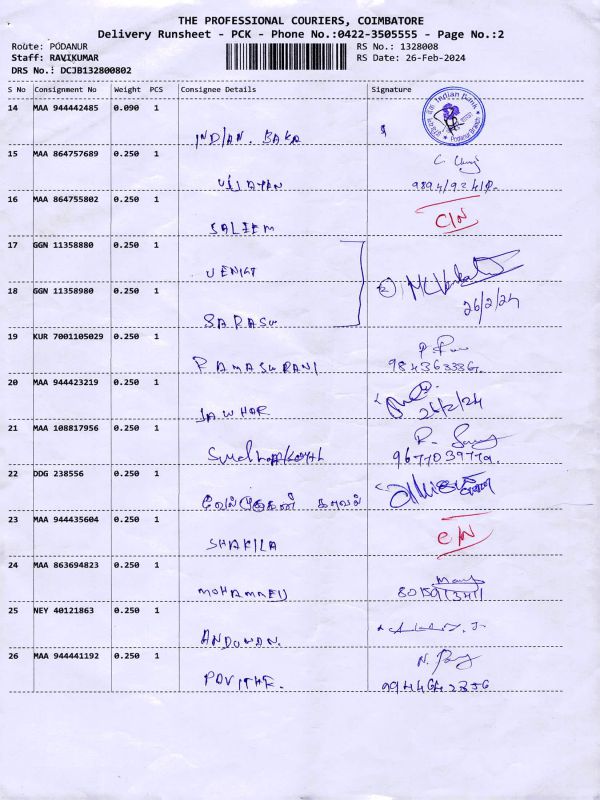 THE PROFESSIONAL COURIERS, COIMBATORE
Delivery Runsheet - PCK - Phone No.:0422-3505555 - Page No.:2
Route: PODANUR RS No.: 1328008
Staff: RAVIKUMAR RS Date: 26-Feb-2024
DRS No.: DCJB132800802
S No Consignment No Weight PCS Consignee Details Signature
14 MAA 944442485 0.090 1
Indian Bank
Podanur Branch
INDIAN. BAKA
15 MAA 864757689 0.250 1
VIJAYAN
16 MAA 864755802 0.250 1
C/N
SALIEM
17 GGN 11358880 0.250 1
18 GGN 11358980 0.250 1
26/2/24
SARASU
19 KUR 7001105029 0.250 1
RAMASURANI 984363336.
20 MAA 944423219 0.250 1
JAWHAR 26/2/24
21 MAA 108817956 0.250 1
9677039779.
22 DDG 238556 0.250 1
வேல்முருகன் காவல்
23 MAA 944435604 0.250 1
C/N
SHAKILA
24 MAA 863694823 0.250 1
MOHAMMED
25 NEY 40121863 0.250 1
26 MAA 944441192 0.250 1
PAVITHE. 9944642356